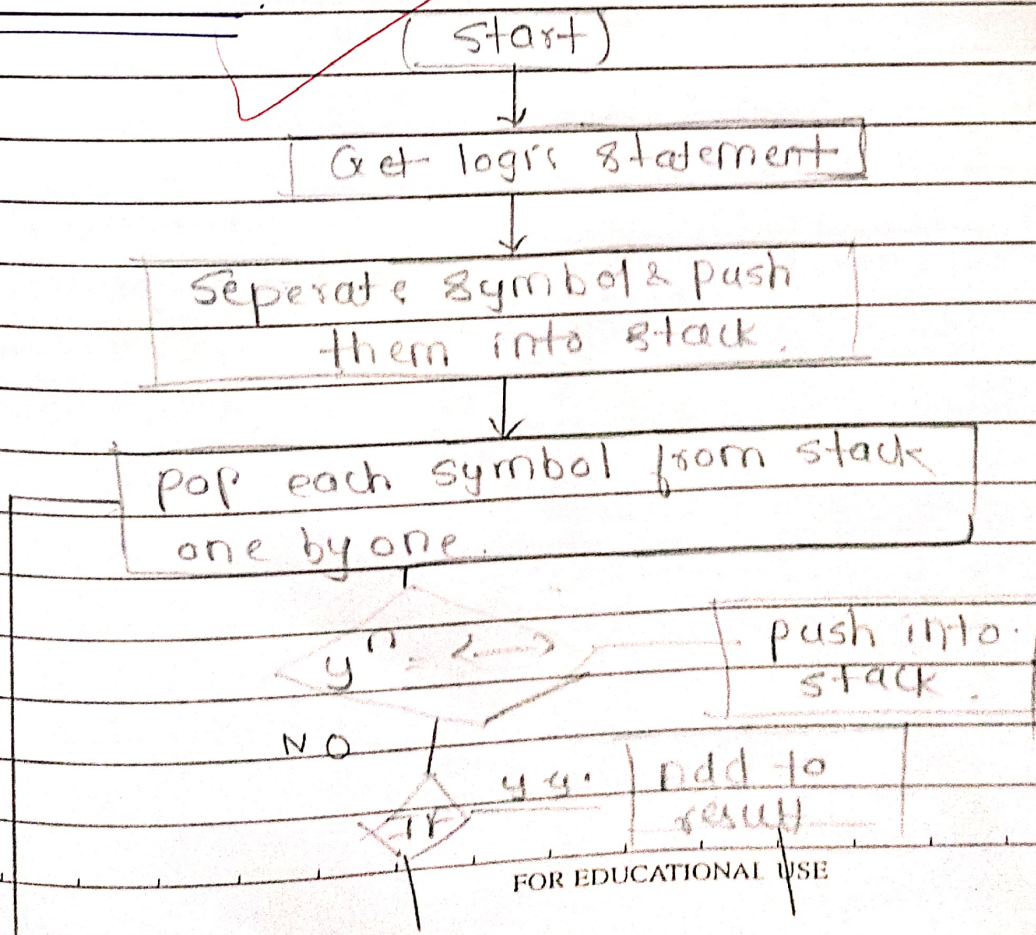 Start
Get logic statement
Seperate symbol & push
them into stack.
pop each symbol from stack
one by one.
push into
stack.
NO
Add to
result
FOR EDUCATIONAL USE